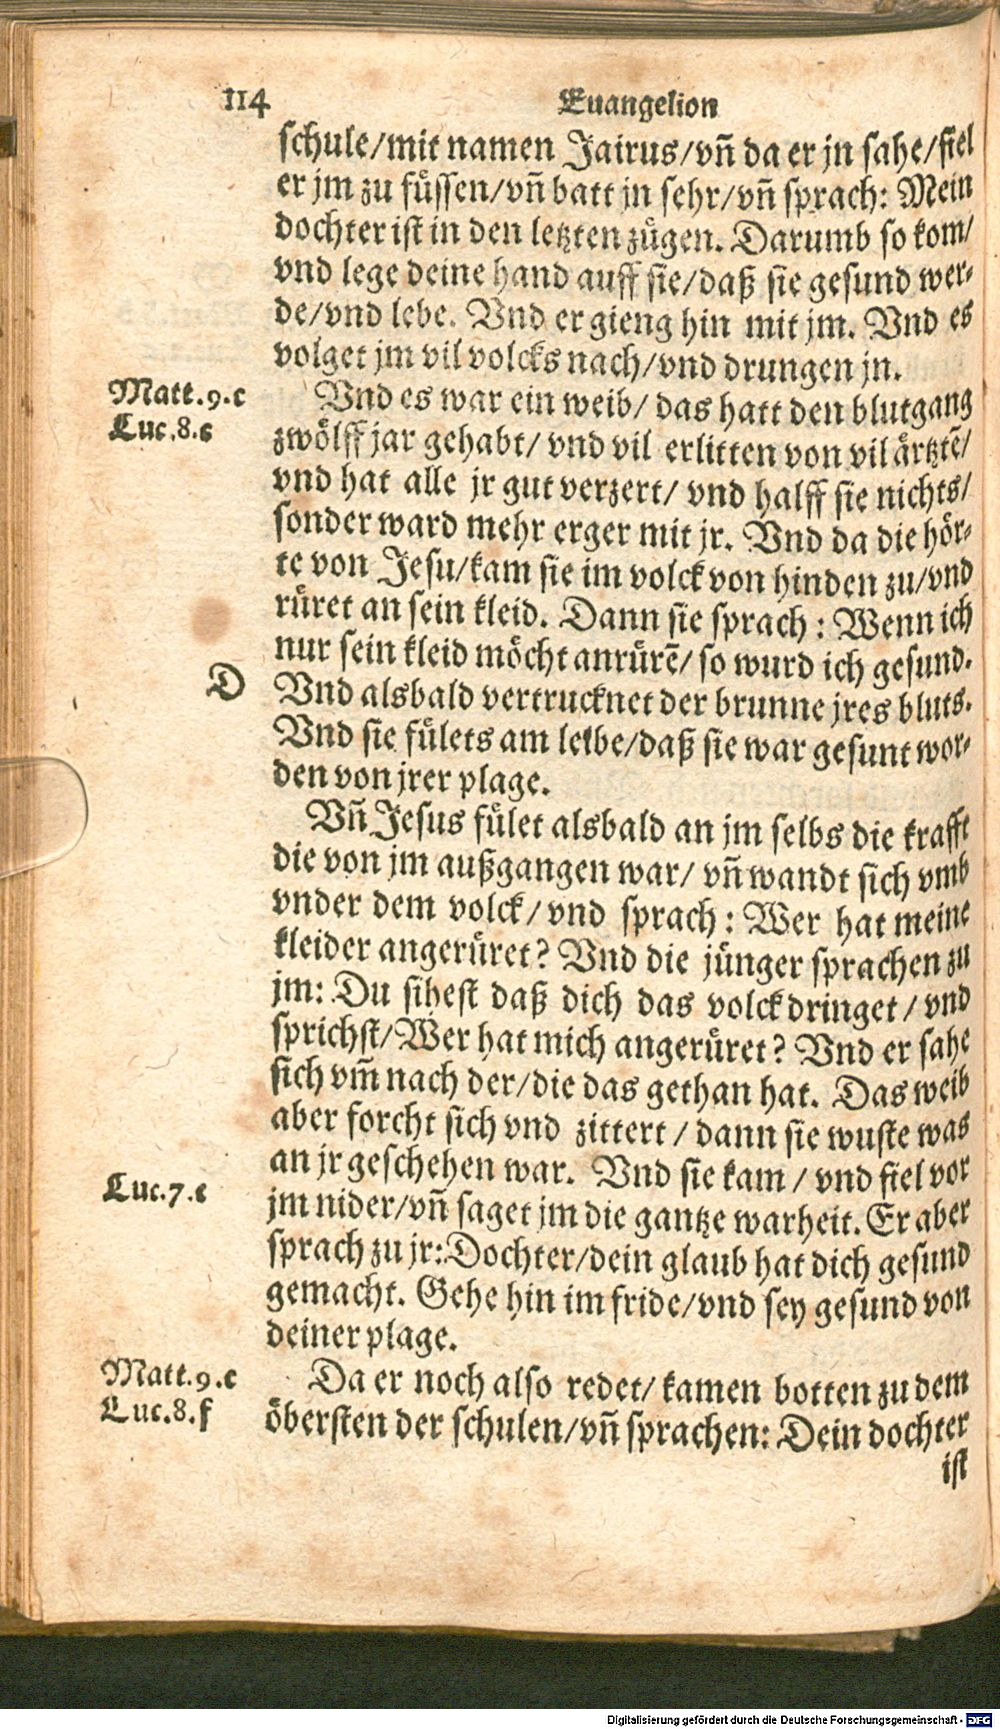 114
Euangelion
schule/mit namen Jairus/vñ da er jn sahe/fiel
er jm zu füssen/vñ batt jn sehr/vñ sprach: Mein
dochter ist in den letzten zügen. Darumb so kom/
vnd lege deine hand auff sie/daß sie gesund wer-
de/vnd lebe. Vnd er gieng hin mit jm. Vnd es
volget jm vil volcks nach/vnd drungen jn.
Matt.9.c
Luc.8.e
Vnd es war ein weib/ das hatt den blutgang
zwölff jar gehabt/ vnd vil erlitten von vil ärtztẽ/
vnd hat alle jr gut verzert/ vnd halff sie nichts/
sonder ward mehr erger mit jr. Vnd da die hör-
te von Jesu/kam sie im volck von hinden zu/vnd
rüret an sein kleid. Dann sie sprach: Wenn ich
nur sein kleid möcht anrürẽ/ so wurd ich gesund.
D
Vnd alsbald vertrucknet der brunne jres bluts.
Vnd sie fülets am leibe/daß sie war gesunt wor-
den von jrer plage.
Vñ Jesus fület alsbald an jm selbs die krafft
die von jm außgangen war/ vñ wandt sich vmb
vnder dem volck/ vnd sprach: Wer hat meine
kleider angerüret? Vnd die jünger sprachen zu
jm: Du sihest daß dich das volck dringet/ vnd
sprichst/Wer hat mich angerüret? Vnd er sahe
sich vm̃ nach der/die das gethan hat. Das weib
aber forcht sich vnd zittert/ dann sie wuste was
an jr geschehen war. Vnd sie kam/ vnd fiel vor
Luc.7.e
jm nider/vñ saget jm die gantze warheit. Er aber
sprach zu jr: Dochter/dein glaub hat dich gesund
gemacht. Gehe hin im fride/vnd sey gesund von
deiner plage.
Matt.9.c
Luc.8.f
Da er noch also redet/ kamen botten zu dem
öbersten der schulen/vñ sprachen: Dein dochter
ist
Digitalisierung gefördert durch die Deutsche Forschungsgemeinschaft - DFG